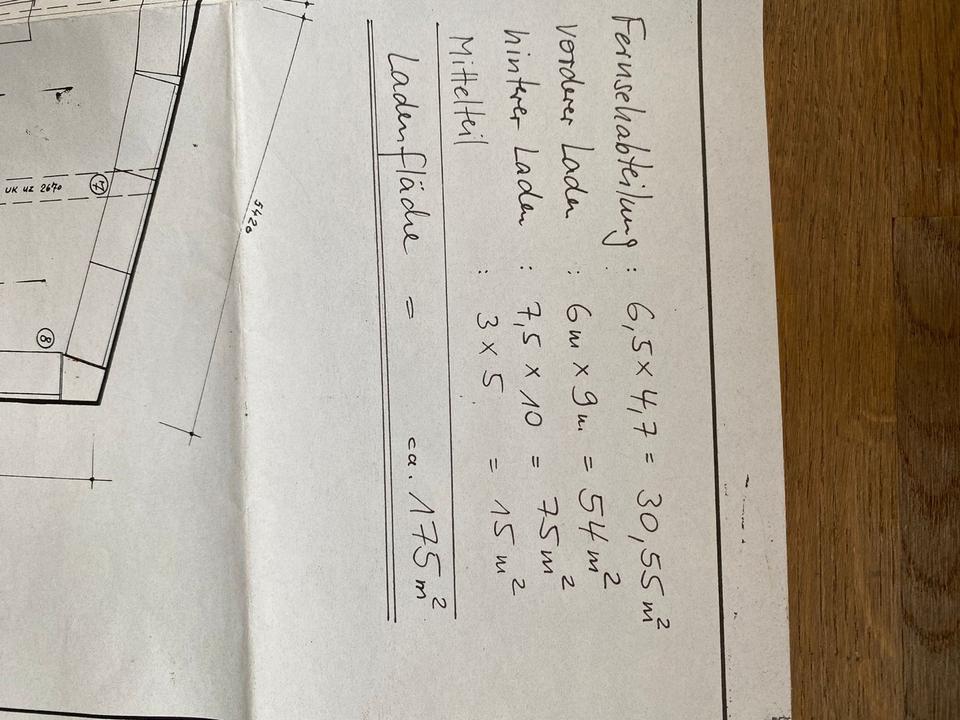 Fernsehabteilung : 6,5 x 4,7 = 30,55 m²
vorderer Laden : 6m x 9m = 54 m²
hinterer Laden : 7,5 x 10 = 75 m²
Mittelteil : 3 x 5 = 15 m²
Ladenfläche = ca. 175 m²
5420
7
UK UZ 2670
8